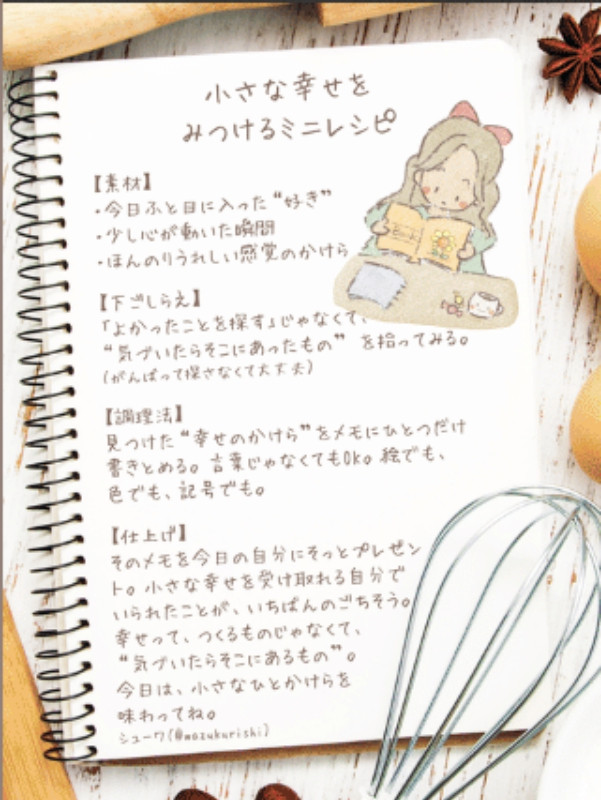 小さな幸せを
みつけるミニレシピ
【素材】
・今日ふと目に入った“好き”
・少し心が動いた瞬間
・ほんのりうれしい感覚のかけら
【下ごしらえ】
「よかったことを探す」じゃなくて、
“気づいたらそこにあったもの” を拾ってみる。
(がんばって探さなくて大丈夫)
【調理法】
見つけた“幸せのかけら”をメモにひとつだけ
書きとめる。言葉じゃなくてもOk。絵でも、
色でも、記号でも。
【仕上げ】
そのメモを今日の自分にそっとプレゼン
ト。小さな幸せを受け取れる自分で
いられたことが、いちばんのごちそう。
幸せって、つくるものじゃなくて、
“気づいたらそこにあるもの”。
今日は、小さなひとかけらを
味わってね。
シューワ(@mozukurishi)